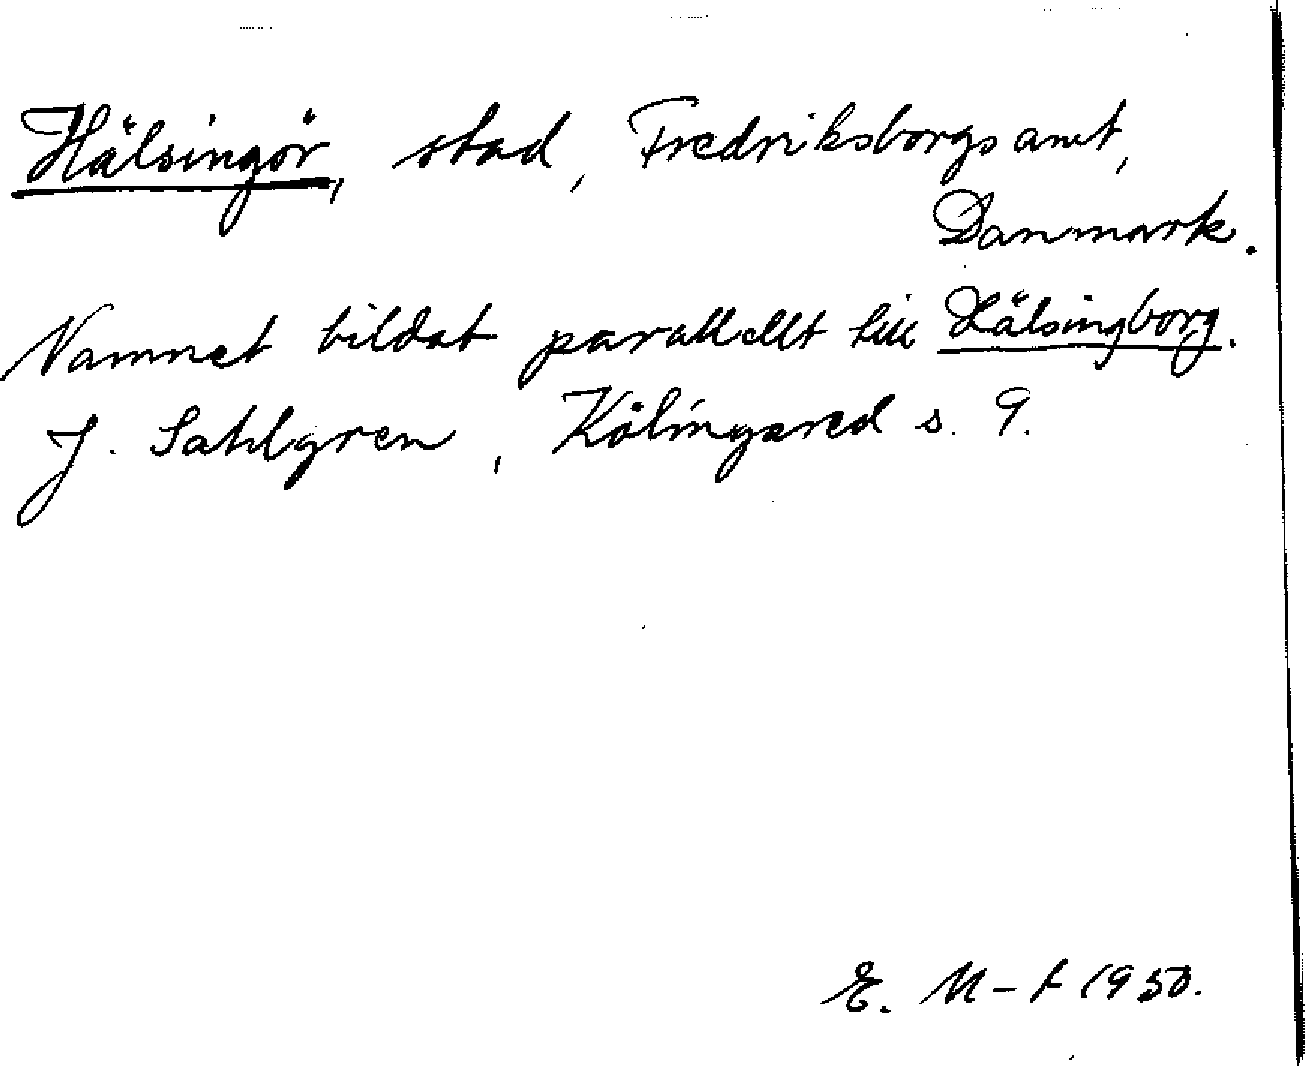 Hälsingör, stad, Fredriksborgs amt,
Danmark.
Namnet bildat parallellt till Hälsingborg.
J. Sahlgren, Kölingared s. 9.
E. M-t 1950.